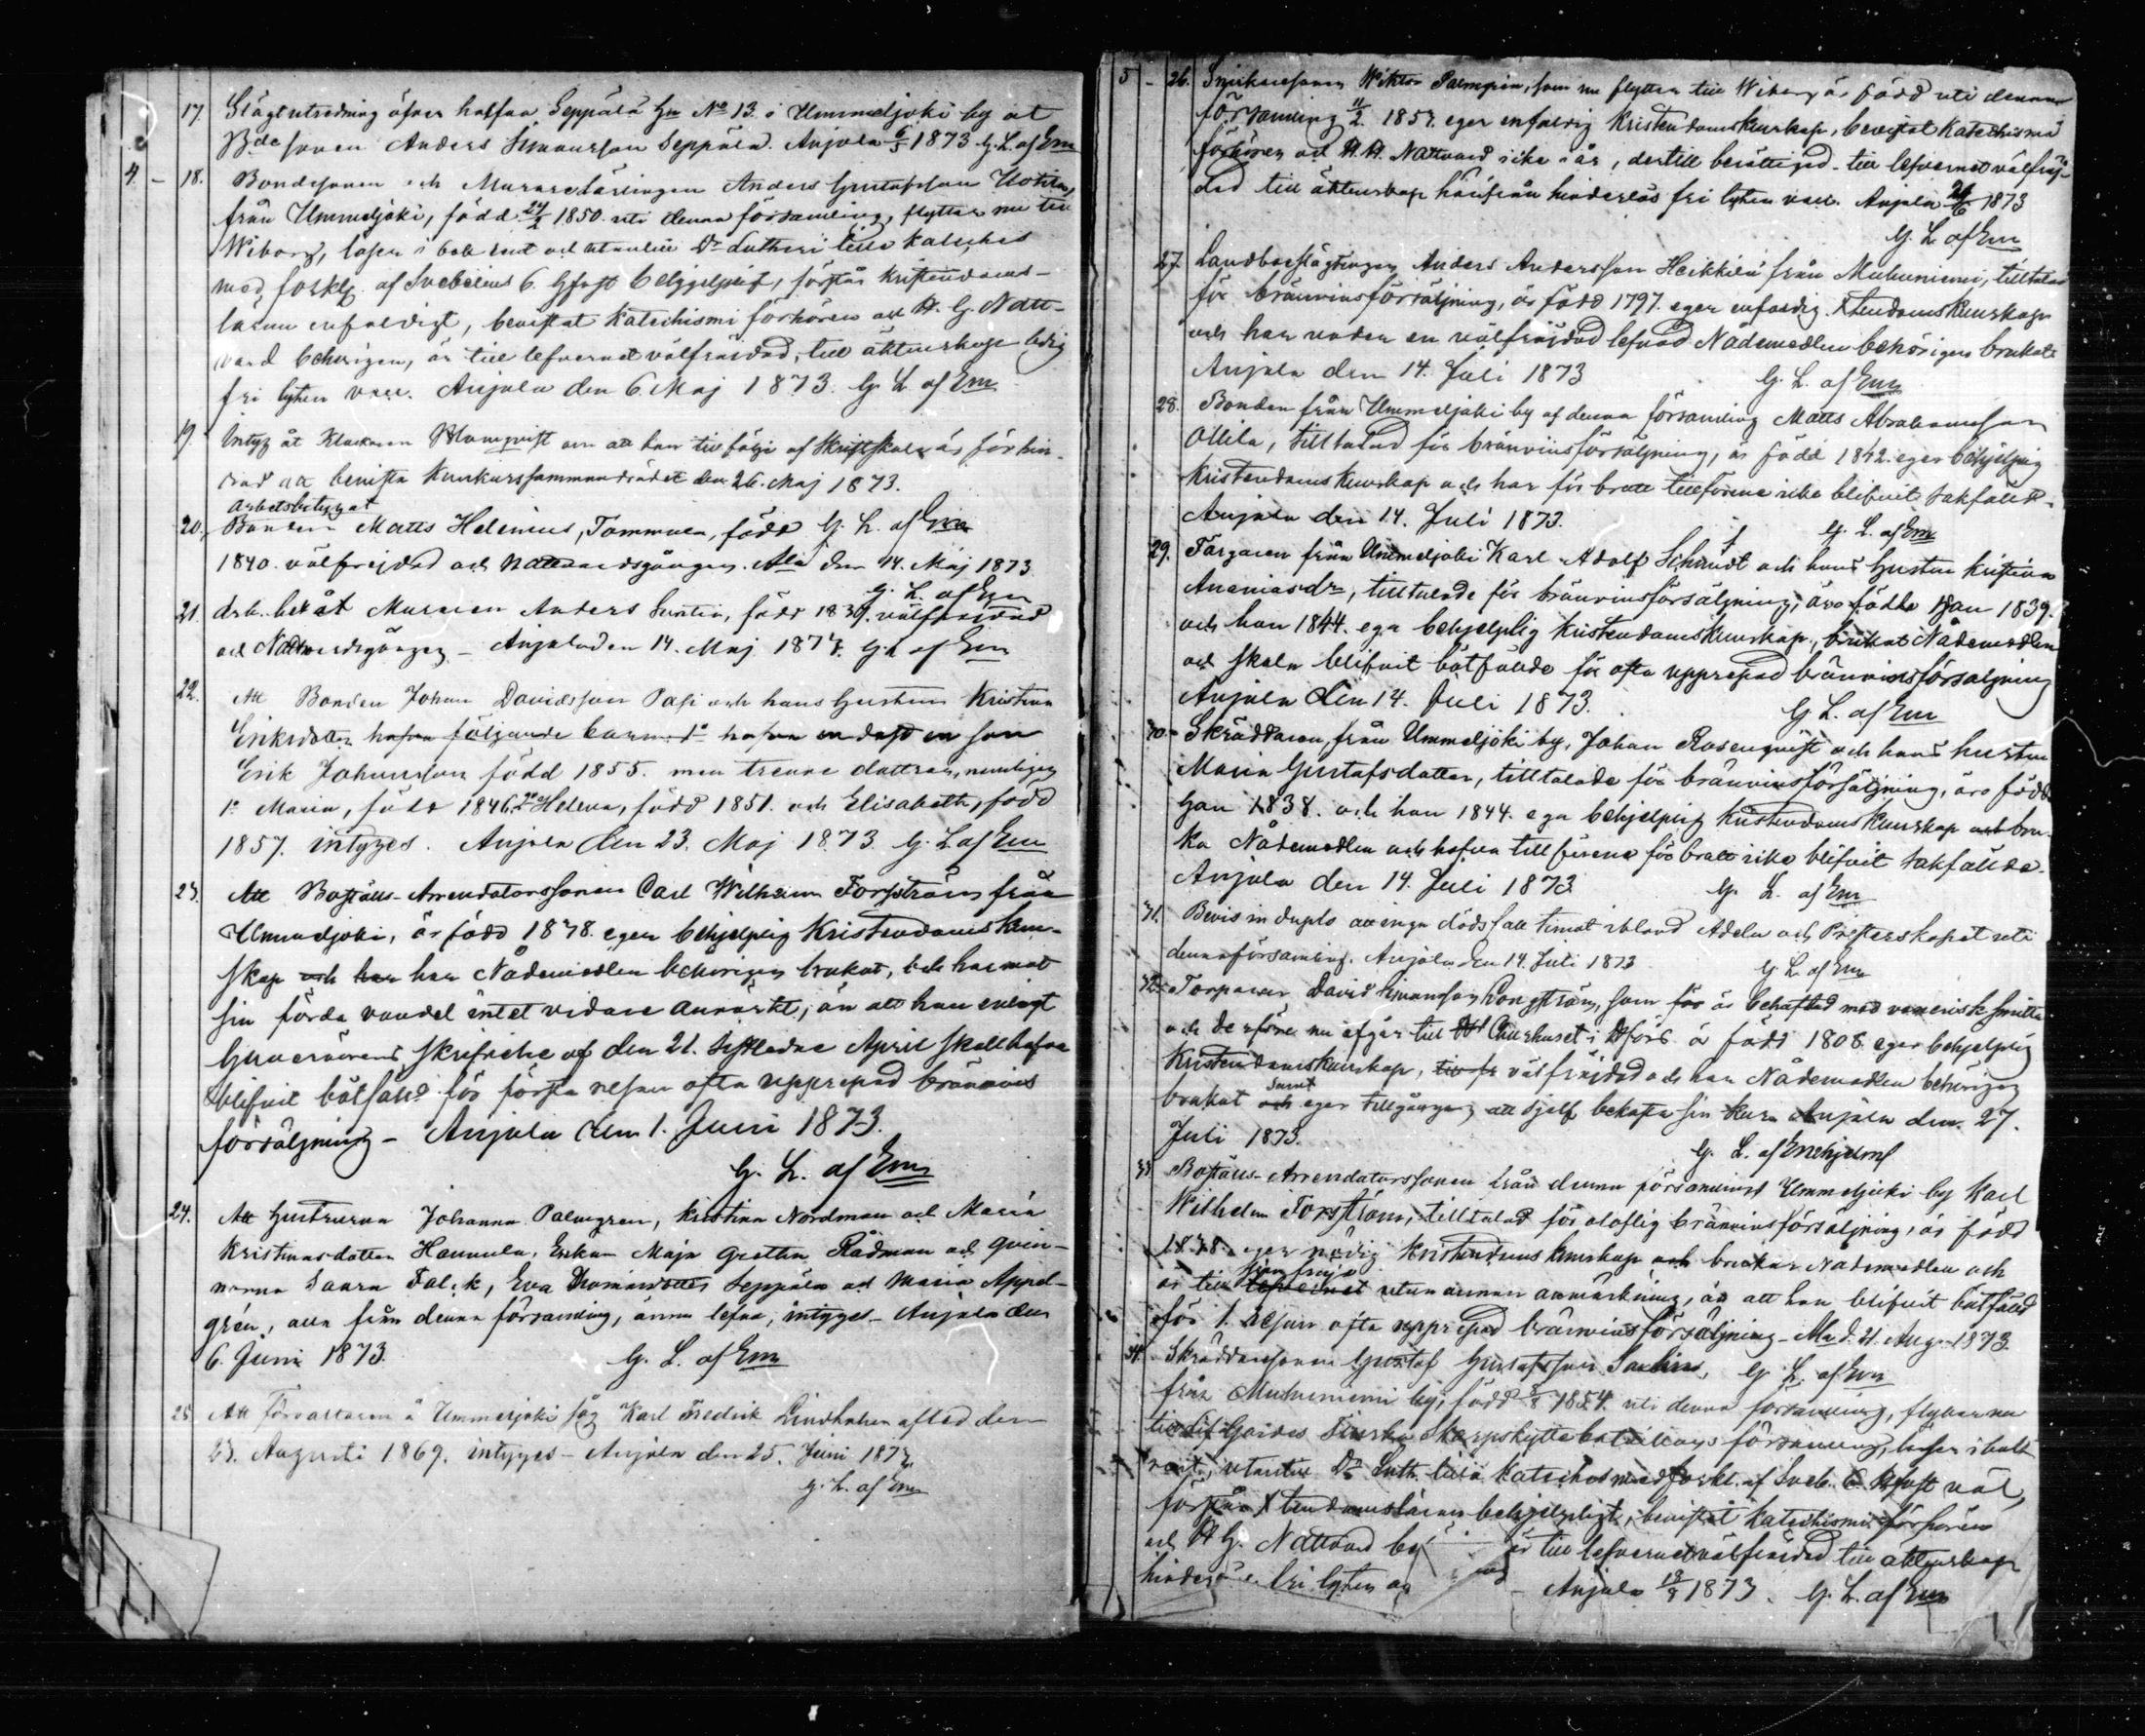 17. Slägtutredning öfver halfva Seppälä Hn No 13. i Ummeljoki by åt
Bde sonen Anders Simonsson Seppälä. Anjala 6/5 1873 G. L. af Em
4. – 18. Bondesonen och Murarelärlingen Anders Gustafsson
från Ummeljoki, född 24/2 1850. uti denna församling, flyttar nu till
Wiborg, läser i bok rent och utantill Dr Lutheri lilla kateches
med förklg af Svebelius 6. Hfvst behjelpligt, förstår Kristendoms-
läran enfaldigt, bevistat Katechismi förhören och H. G. Natt-
vard behörigen, är till lefvernet välfräjdad, till äktenskap ledig
fri lyten vac. Anjala den 6 Maj 1873. G. L. af Em
19 Intyg åt Klockaren Blomqvist om att han till följe af Skriftskola är förhin-
drad att bevista Konkurssammanträdet den 26. Maj 1873.
arbetsbetyg åt
20. Bonden Matts Helenius, Tommola, född G. L. af Em
1840. välfrejdad och nattvardsgången. Ala den 14. Maj 1873
G. L. af Em
21. drb. bet åt Muraren Anders Suntio, född 1839. välfrejdad
och Nattvardsgången – Anjala den 14. Maj 1873. G. L. af Em
22. Att Bonden Johan Davidsson Pasi och hans hustru Kristina
Eriksdotter hafva följande barn: 1o hafva endast en son
Erik Johansson född 1855. men trenne döttrar, nemligen
1o Maria, född 1846. 2o Helena, född 1851. och Elisabeth, född
1857. intyges. Anjala den 23. Maj 1873. G. L. af Em
23. Att Boställs-Arrendatorssonen Carl Wilhelm Forsström från
Ummeljoki, är född 1848. eger behjelplig Kristendoms kun-
skap och har han Nådemedlen behörigen brukat, och har mot
sin förda vandel intet vidare anmärkts, än att han enligt
Guvernörens skrifvelse af den 21. sistledne April skall hafva
blifvit bötfäld för första resan ofta upprepad bränvins
försäljning – Anjala den 1. Juni 1873.
G. L. af Em
24. Att hustrurna Johanna Palmgren, Kristina Nordman och Maria
Kristiansdotter Hannula, Enkan Maja Gretha Rådman och qvin-
norna Saara Falck, Eva Thomasdotter Seppälä och Maria Appel-
grén, alla från denna församling, ännu lefva, intyges – Anjala den
6. Juni 1873. G. L. af Em
25 Att Förvaltaren å Ummeljoki såg Karl Fredrik Lindholm afled den
23. Augusti 1869. intyges – Anjala den 25. Juni 1873.
G. L. af Em
5 – 26. Snickaresonen Wiktor Palmgrén, som nu flyttar till Wiborg är född uti denna
församling 11/2. 1857. eger enfaldig Kristendomskunskap, bevistat Katechismi
förhören och H. H. Nattvard icke i år, dertill berättigad – till lefvernet välfräj-
dad till äktenskap härifrån hinderlös fri lyten vacc. Anjala 26/6 1873
G. L. af Em
27. Landboeslägtingen Anders Andersson Heikkilä från Muhuniemi, tilltalad
för bränvinsförsäljning, är född 1797. eger enfaldig Xtendomskunskap
och har under en välfräjdad lefnad Nådemedlen behörigen brukat
Anjala den 14. Juli 1873 G. L. af Em
28. Bonden från Ummeljoki by af denna församling Matts Abrahamsson
Ollila, tilltalad för bränvinsförsäljning, är född 1842. eger behjelplig
Kristendomskunskap och har för brott tillförene icke blifvit sakfäld.
Anjala den 14. Juli 1873. G. L. af Em
29. Färgaren från Ummeljoki Karl Adolf Schmidt och hans hustru Kristina
Ananiasdr, tilltalade för bränvinsförsäljning, äro födde han 1839.
och hon 1844. ega behjelplig Kristendomskunskap, brukat Nådemedlen
och skola blifvit bötfälde för ofta upprepad bränvinsförsäljning
Anjala den 14. Juli 1873. G. L. af Em
30. Skräddaren från Ummeljoki by, Johan Rosenqvist och hans hustru
Maria Gustafsdotter, tilltalade för bränvinsförsäljning, äro födde
han 1838. och hon 1844. ega behjelplig Kristendoms kunskap och bru-
ka Nådemedlen och hafva tillförene för brott icke blifvit sakfälde.
Anjala den 14. Juli 1873 G. L. af Em
31. Bevis in duplo att inga dödsfall timat ibland Adeln och Presterskapet uti
denna församling. Anjala den 14. Juli 1873 G. L. af Em
32. Torparen David Simonsson Longström, som för är behäftad med venerisk smitta
och derföre nu afgår till Churhuset i Dfors är född 1808. eger behjelplig
Kristendomskunskap, välfräjdad och har Nådemedlen behörigen
brukat och samt eger tillgångar att sjelf bekosta sin kura Anjala den 27.
Juli 1873. G. L. af Enehjelm
33 Boställs-Arrendatorssonen från denna församlings Ummeljoki by Karl
Wilhelm Forsström, tilltalad för olaflig bränvinsförsäljning, är född
1848. eger nödig Kristendoms kunskap och brukar Nådemedlen och
är till lefvernet utan annan anmärkning, än att han blifvit bötfäld
för 1. resan ofta upprepad bränvinsförsäljning – Ala d. 21. Aug. 1873.
34. Skräddaresonen Gustaf Gustafsson Saulin, G. L. af Em
från Muhuniemi by, född 8/8 1854. uti denna församling, flyttar nu
till Lif Gardes Finska Skarpskyttebataillons församling, läser i bok
rent, utantill Dr Luth. lilla Kateches med förkl. af Sveb. 6 Hfvst väl,
förstår Xtendomsläran behjelpligt, bevistat Katechismi förhören
och H. G. Nattvard är till lefvernet välfräjdad till äktenskap
fri lyten – Anjala 18/9 1873. G. L. af Em